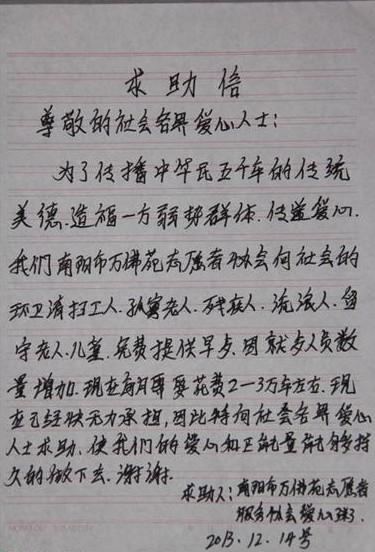 求助信
尊敬的社会各界爱心人士:
为了传播中华民五千年的传统
美德.造福一方弱势群体.传递爱心.
我们南阳市万佛苑志愿者协会向社会的
环卫清扫工人.孤寡老人.残疾人.流浪人.留
守老人.儿童.免费提供早点.因就歺人员数
量增加.现在每月需要花费2-3万年左右.现
在已经快无力承担,因此特向社会各界爱心
人士求助.使我们的爱心和正能量能够持
久的做下去.谢谢.
求助人:南阳市万佛苑志愿者
服务协会爱心粥.
2013.12.14号